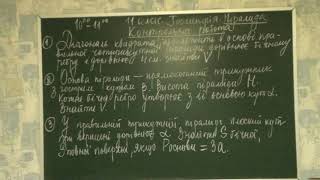 10⁰⁰ 11⁰⁰ 11 клас Геометрія Піраміда
Контрольна робота
① Діагональ квадрата, що лежить в основі пра-
вильної чотирикутної піраміди дорівнює бічному
ребру і дорівнює 4 см. Знайти V
② Основа піраміди – прямокутний трикутник
з гострим кутом β. Висота піраміди H.
Кожне бічне ребро утворює з її основою кут α.
Знайдіть V.
③ У правильній трикутній піраміді плоский кут
при вершині дорівнює α Знайти S бічної,
S повної поверхні, якщо P основи = 3a.